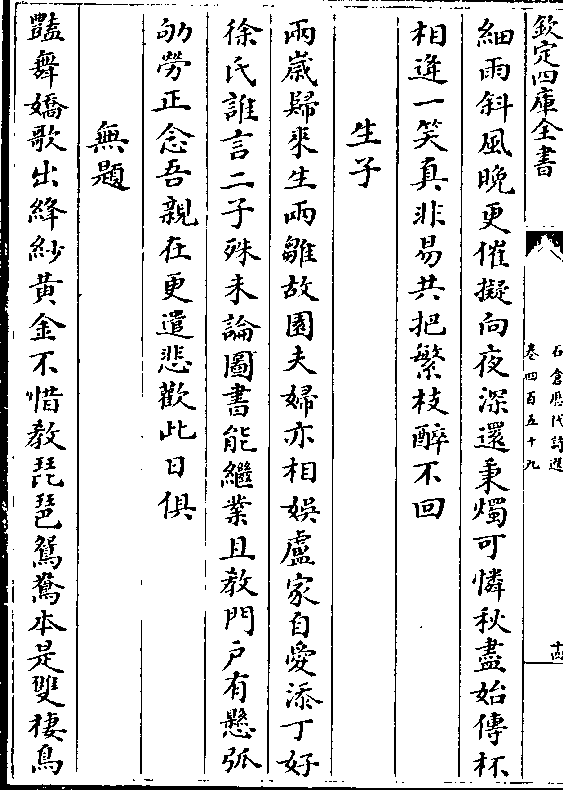 欽定四庫全書
石倉歷代詩選
卷四百五十九
十四
細雨斜風晚更催擬向夜深還秉燭可憐秋盡始傳杯
相逢一笑真非易共把繁枝醉不回
生子
兩歲歸來生兩雛故園夫婦亦相娛盧家自愛添丁好
徐氏誰言二子殊未論圖書能繼業且教門戶有懸弧
劬勞正念吾親在更遣悲歡此日俱
無題
豔舞嬌歌出絳紗黃金不惜教琵琶鴛鴦本是雙棲鳥